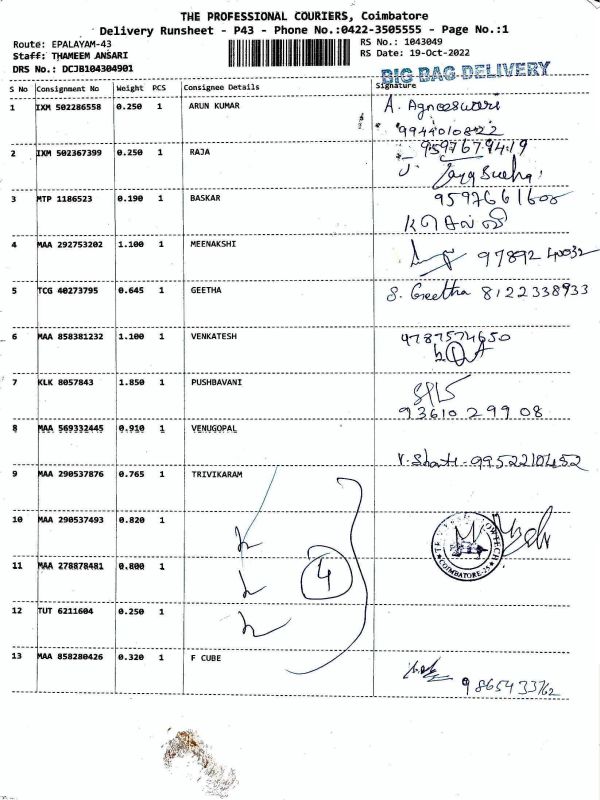 THE PROFESSIONAL COURIERS, Coimbatore
Delivery Runsheet - P43 - Phone No.:0422-3505555 - Page No.:1
Route: EPALAYAM-43
Staff: THAMEEM ANSARI
DRS No.: DCJB104304901
RS No.: 1043049
RS Date: 19-Oct-2022
BIG BAG DELIVERY
S No Consignment No Weight PCS Consignee Details Signature
1 IXM 502286558 0.250 1 ARUN KUMAR A. Agneeswari
9944010822
2 IXM 502367399 0.250 1 RAJA 9597679419
3 MTP 1186523 0.190 1 BASKAR 9597661600
K செல்வி
4 MAA 292753202 1.100 1 MEENAKSHI 9789240032
5 TCG 40273795 0.645 1 GEETHA S. Geetha 8122338933
6 MAA 858381232 1.100 1 VENKATESH 9787574650
7 KLK 8057843 1.850 1 PUSHBAVANI
9361029908
8 MAA 569332445 0.910 1 VENUGOPAL
V. Shanti - 9952210452
9 MAA 290537876 0.765 1 TRIVIKARAM
10 MAA 290537493 0.820 1
11 MAA 278878481 0.800 1 4
COIMBATORE-25
12 TUT 6211604 0.250 1
13 MAA 858280426 0.320 1 F CUBE
9865433762